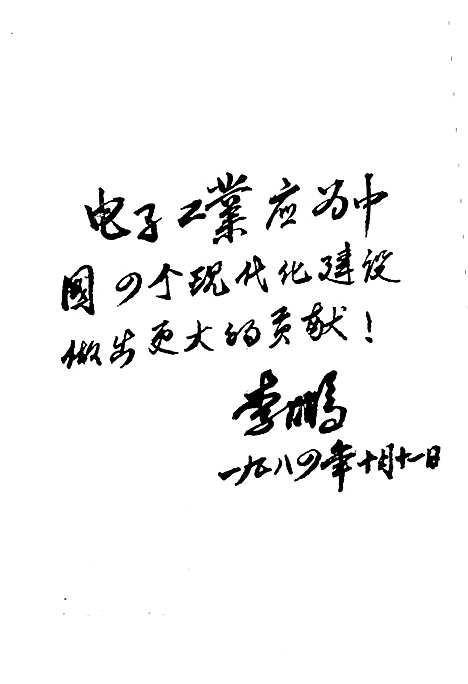 电子工業应为中
國四个现代化建设
做出更大的贡献！
李鹏
一九八四年十月十一日